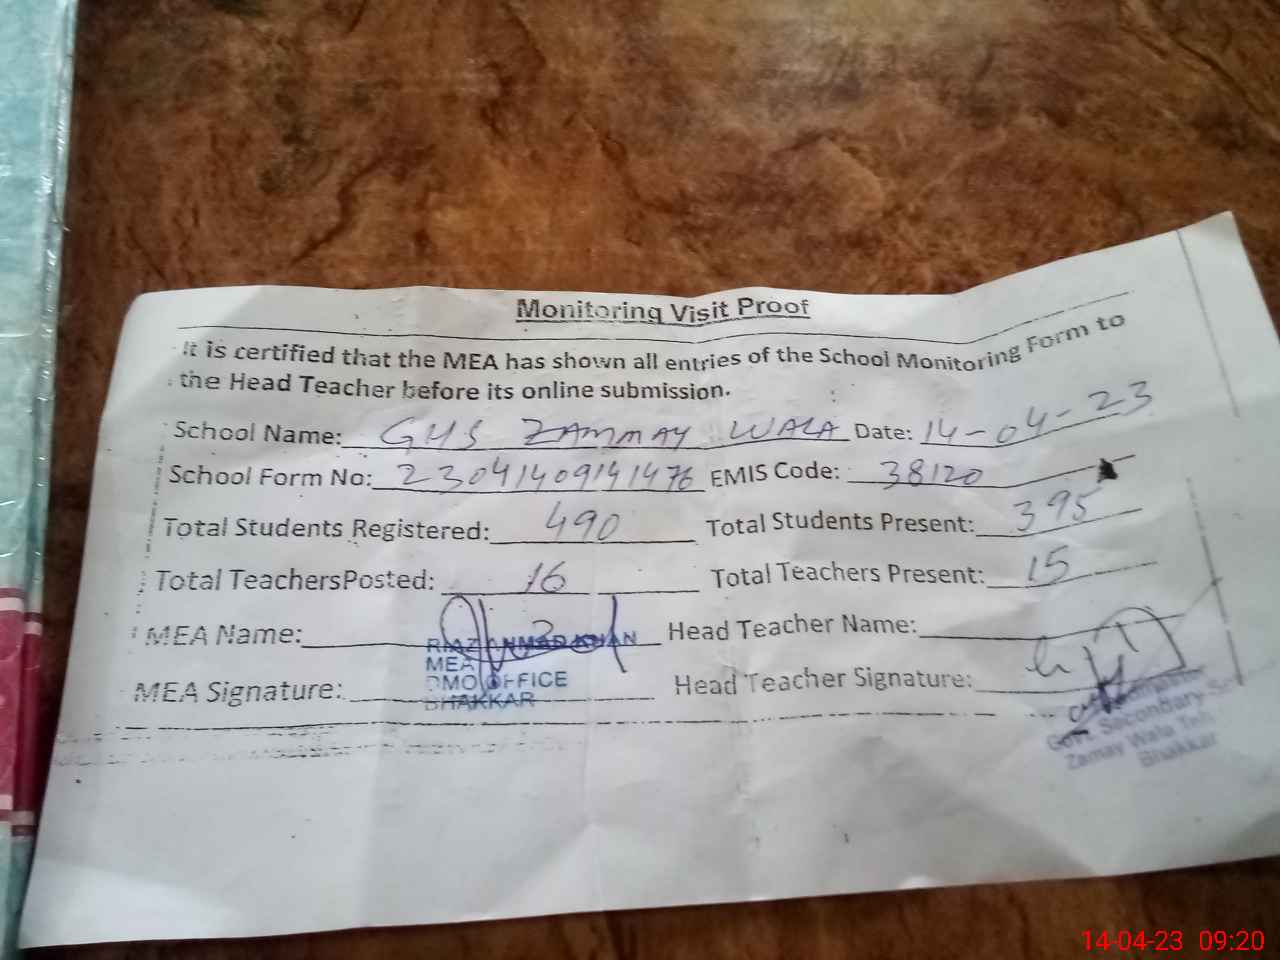 Monitoring Visit Proof
It is certified that the MEA has shown all entries of the School Monitoring Form to
the Head Teacher before its online submission.
School Name: GHS ZAMMAY WALA Date: 14-04-23
School Form No: 23041409141476 EMIS Code: 38120
Total Students Registered: 490 Total Students Present: 395
Total TeachersPosted: 16 Total Teachers Present: 15
MEA Name: RIAZ AHMAD KHAN Head Teacher Name:
MEA
DMO OFFICE
BHAKKAR
MEA Signature: Head Teacher Signature:
Govt. Secondary
Zamay Wala Teh
Bhakkar
14-04-23 09:20